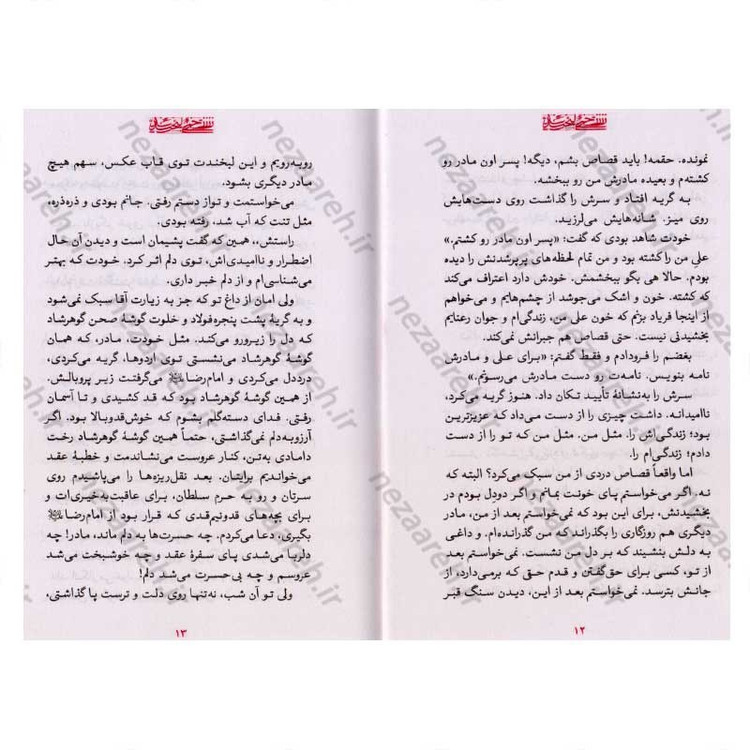 نمونده. حقمه! باید قصاص بشم، دیگه! پسر اون مادر رو
کشته‌م و بعیده مادرش من رو ببخشه.
به گریه افتاد و سرش را گذاشت روی دست‌هایش
روی میز. شانه‌هایش می‌لرزید.
خودت شاهد بودی که گفت: «پسر اون مادر رو کشتم.»
علیِ من را کشته بود و من تمام لحظه‌های پرپرشدنش را دیده
بودم. حالا هی بگو ببخشمش. خودش دارد اعتراف می‌کند
که کشته. خون و اشک می‌جوشد از چشم‌هایم و می‌خواهم
از اینجا فریاد بزنم که خون علی من، زندگی‌ام و جوان رعنایم
بخشیدنی نیست. حتی قصاص هم جبرانش نمی‌کند.
بغضم را فرودادم و فقط گفتم: «برای علی و مادرش
نامه بنویس. نامه‌ت رو دست مادرش می‌رسونم.»
سرش را به‌نشانهٔ تأیید تکان داد. هنوز گریه می‌کرد،
ناامیدانه. داشت چیزی را از دست می‌داد که عزیزترین
بود؛ زندگی‌اش را. مثل من. مثل من که تو را از دست
دادم؛ زندگی‌ام را.
اما واقعاً قصاص دردی از من سبک می‌کرد؟ البته که
نه. اگر می‌خواستم پای خونت بمانم و اگر دودل بودم در
بخشیدنش، برای این بود که نمی‌خواستم بعد از من، مادر
دیگری هم روزگاری را بگذراند که من گذرانده‌ام. و داغی
به دلش بنشیند که بر دل من نشست. نمی‌خواستم بعد
از تو، کسی برای حق‌گفتن و قدم حق که برمی‌دارد، از
جانش بترسد. نمی‌خواستم بعد از این، دیدن سنگ قبر
۱۲
روبه‌رویم و این لبخندت توی قاب عکس، سهم هیچ
مادر دیگری بشود.
می‌خواستمت و تو از دستم رفتی. جانم بودی و ذره‌ذره،
مثل تنت که آب شد، رفته بودی.
راستش،، همین که گفت پشیمان است و دیدن آن حال
اضطرار و ناامیدی‌اش، توی دلم اثر کرد. خودت که بهتر
می‌شناسی‌ام و از دلم خبر داری.
ولی امان از داغ تو که جز به زیارت آقا سبک نمی‌شود
و به گریهٔ پشت پنجره‌فولاد و خلوت گوشهٔ صحن گوهرشاد
که دل را زیرورو می‌کند. مثل خودت، مادر، که همان
گوشهٔ گوهرشاد می‌نشستی توی اردوها، گریه می‌کردی،
درددل می‌کردی و امام‌رضا می‌گرفتت زیر پروبالش.
از همین گوشهٔ گوهرشاد بود که قد کشیدی و تا آسمان
رفتی. فدای دسته‌گلم بشوم که خوش‌قدوبالا بود. اگر
آرزوبه‌دلم نمی‌گذاشتی، حتماً همین گوشهٔ گوهرشاد رخت
دامادی به‌تن، کنار عروست می‌نشاندمت و خطبهٔ عقد
می‌خواندیم برایتان. بعد نقل‌ریزه‌ها را می‌پاشیدم روی
سرتان و رو به حرم سلطان، برای عاقبت‌به‌خیری‌ات و
برای بچه‌های قدونیم‌قدی که قرار بود از امام‌رضا
بگیری، دعا می‌کردم. چه حسرت‌ها به دلم ماند، مادر! چه
دلربا می‌شدی پای سفرهٔ عقد و چه خوشبخت می‌شد
عروسم و چه بی‌حسرت می‌شد دلم!
ولی تو آن شب، نه‌تنها روی دلت و ترست پا گذاشتی،
۱۳
nezaareh.ir
nezaareh.ir
nezaareh.ir
nezaareh.ir
nezaareh.ir
nezaareh.ir